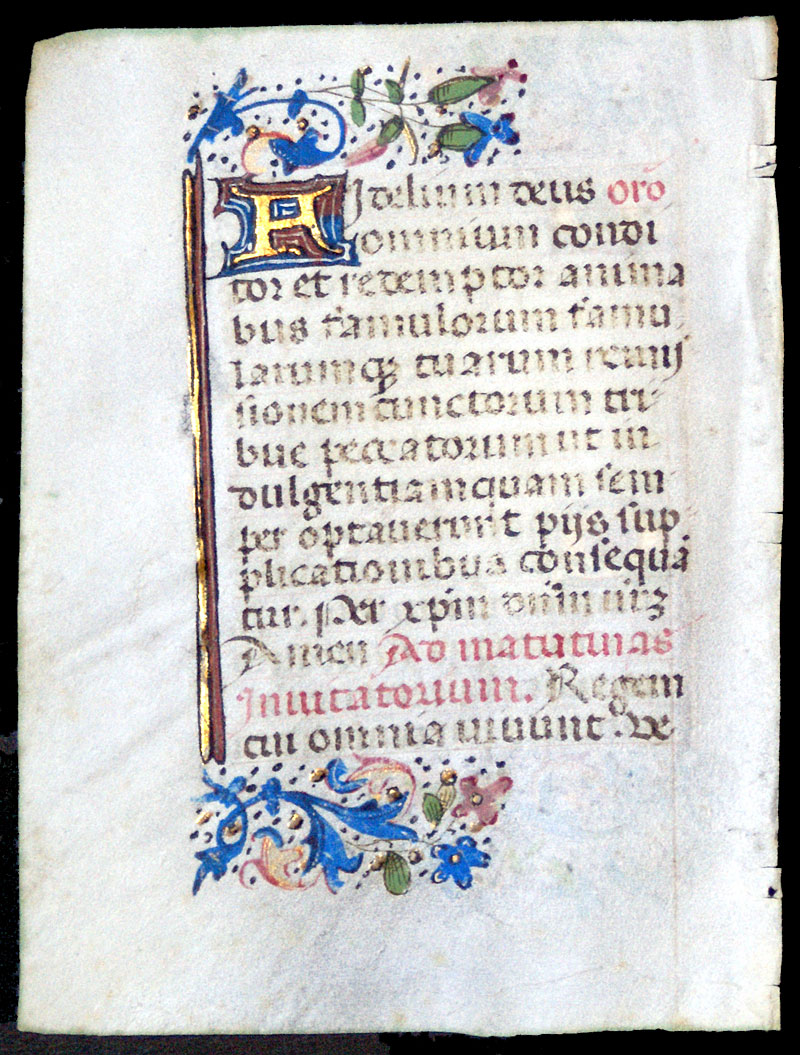 Fidelium deus oro
omnium condi
tor et redemptor anima
bus famulorum famu
larumqꝫ tuarum remis
sionem cunctorum tri
bue peccatorum ut in
dulgentiam quam sem
per optauerunt pijs sup
plicationibus consequā
tur. Per xp̄m dn̄m
Amen Ad matutinas
Inuitatorium. Regem
cui omnia uiuunt. Ve